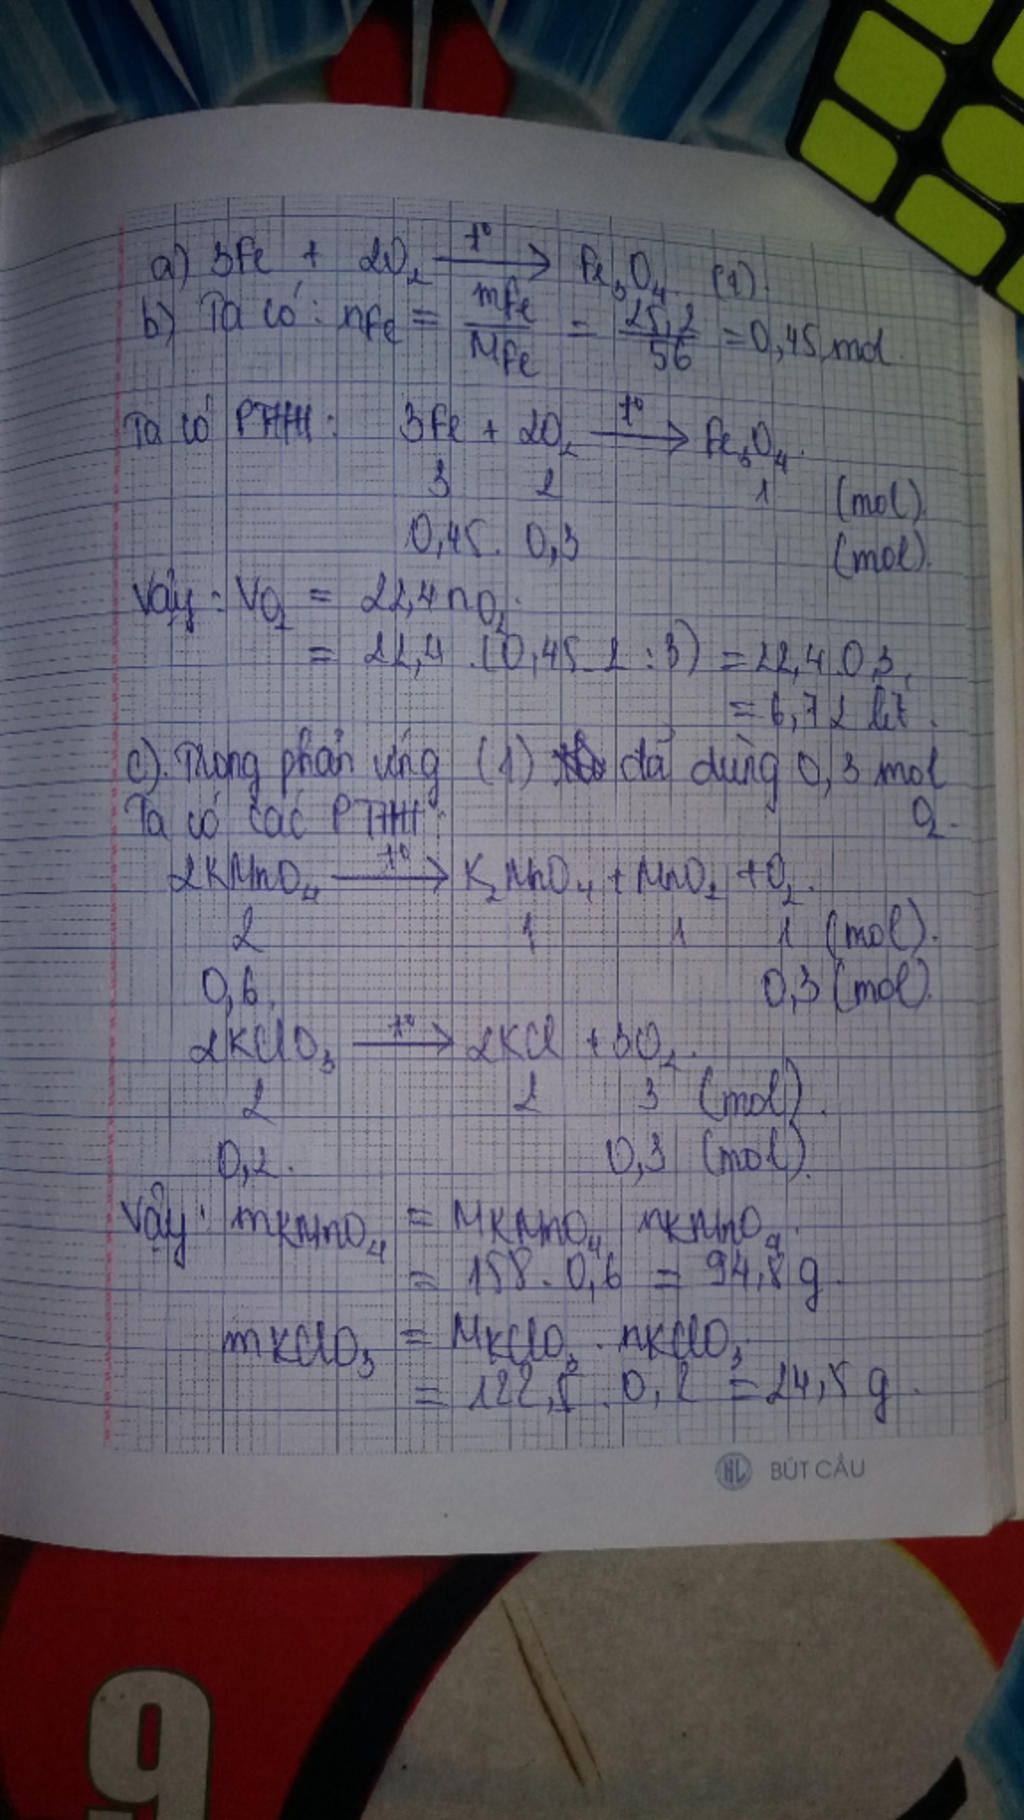 a) 3Fe + 2O₂ —t°→ Fe₃O₄ (1).
b) Ta có: nFe = mFe/MFe = 25,2/56 = 0,45 mol.
Ta có PTHH: 3Fe + 2O₂ —t°→ Fe₃O₄.
3 2 1 (mol).
0,45. 0,3 (mol).
Vậy: VO₂ = 22,4 nO₂.
= 22,4 . (0,45 . 2 : 3) = 22,4 . 0,3.
= 6,72 lít.
c). Trong phản ứng (1) đã dùng 0,3 mol
Ta có các PTHH: O₂.
2KMnO₄ —t°→ K₂MnO₄ + MnO₂ + O₂.
2 1 1 1 (mol).
0,6. 0,3 (mol).
2KClO₃ —t°→ 2KCl + 3O₂.
2 2 3 (mol).
0,2. 0,3 (mol).
Vậy: mKMnO₄ = MKMnO₄ . nKMnO₄.
= 158 . 0,6 = 94,8 g.
mKClO₃ = MKClO₃ . nKClO₃.
= 122,5 . 0,2 = 24,5 g.
HL BÚT CÂU
9